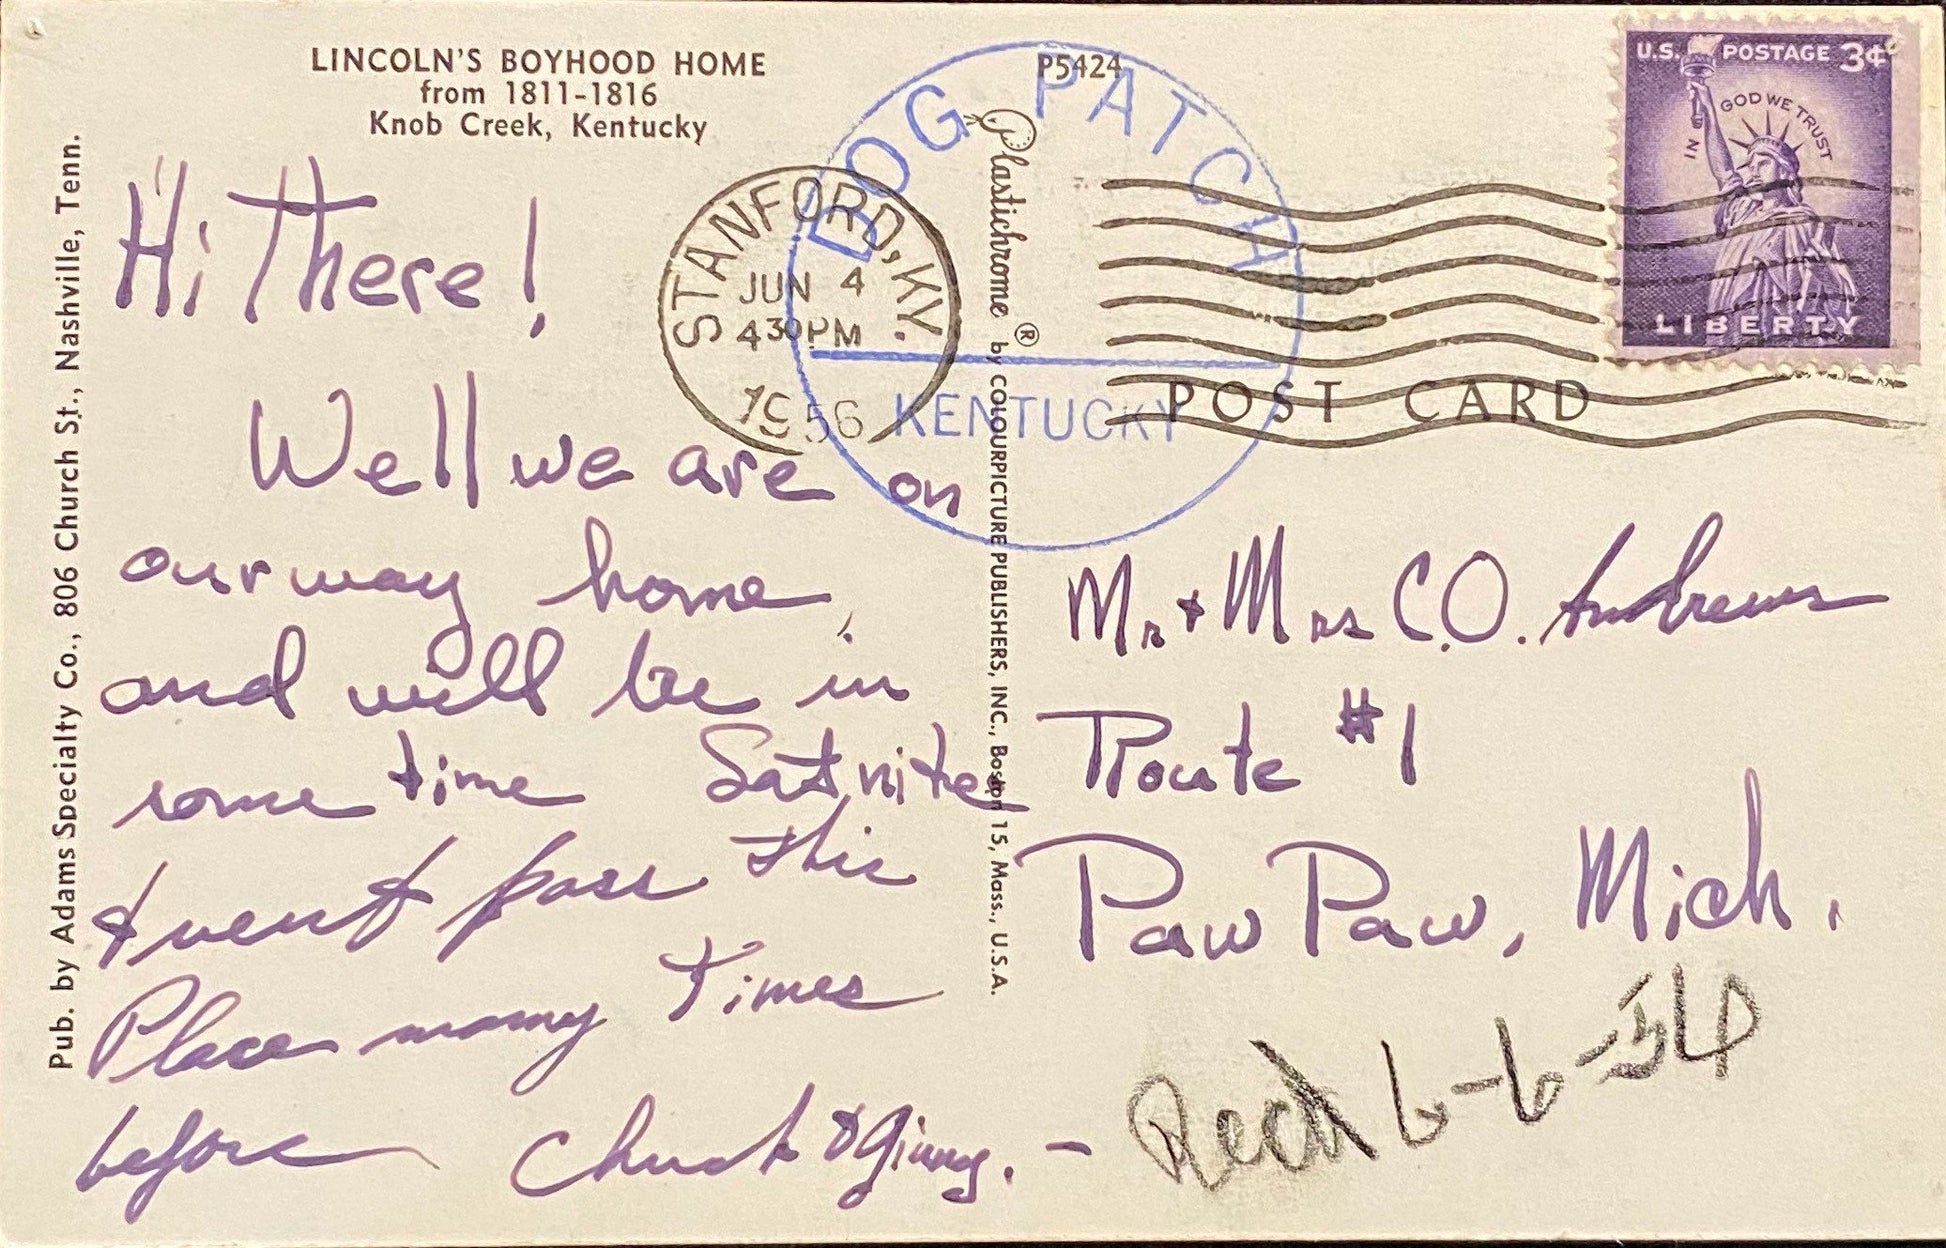 LINCOLN'S BOYHOOD HOME
from 1811-1816
Knob Creek, Kentucky
P5424
DOG PATCH
KENTUCKY
STANFORD, KY.
JUN 4
4 30 PM
1956
U.S. POSTAGE 3¢
IN GOD WE TRUST
LIBERTY
POST CARD
Pub. by Adams Specialty Co., 806 Church St., Nashville, Tenn.
Plastichrome ® by COLOURPICTURE PUBLISHERS, INC., Boston 15, Mass., U.S.A.
Hi There!
Well we are on
our way home,
and will be in
some time Sat nite
+ went pass this
Place many Times
before Chuck & Ginny. -
Mr. + Mrs C.O. Andrews
Route #1
Paw Paw, Mich.
Recd 6-6-